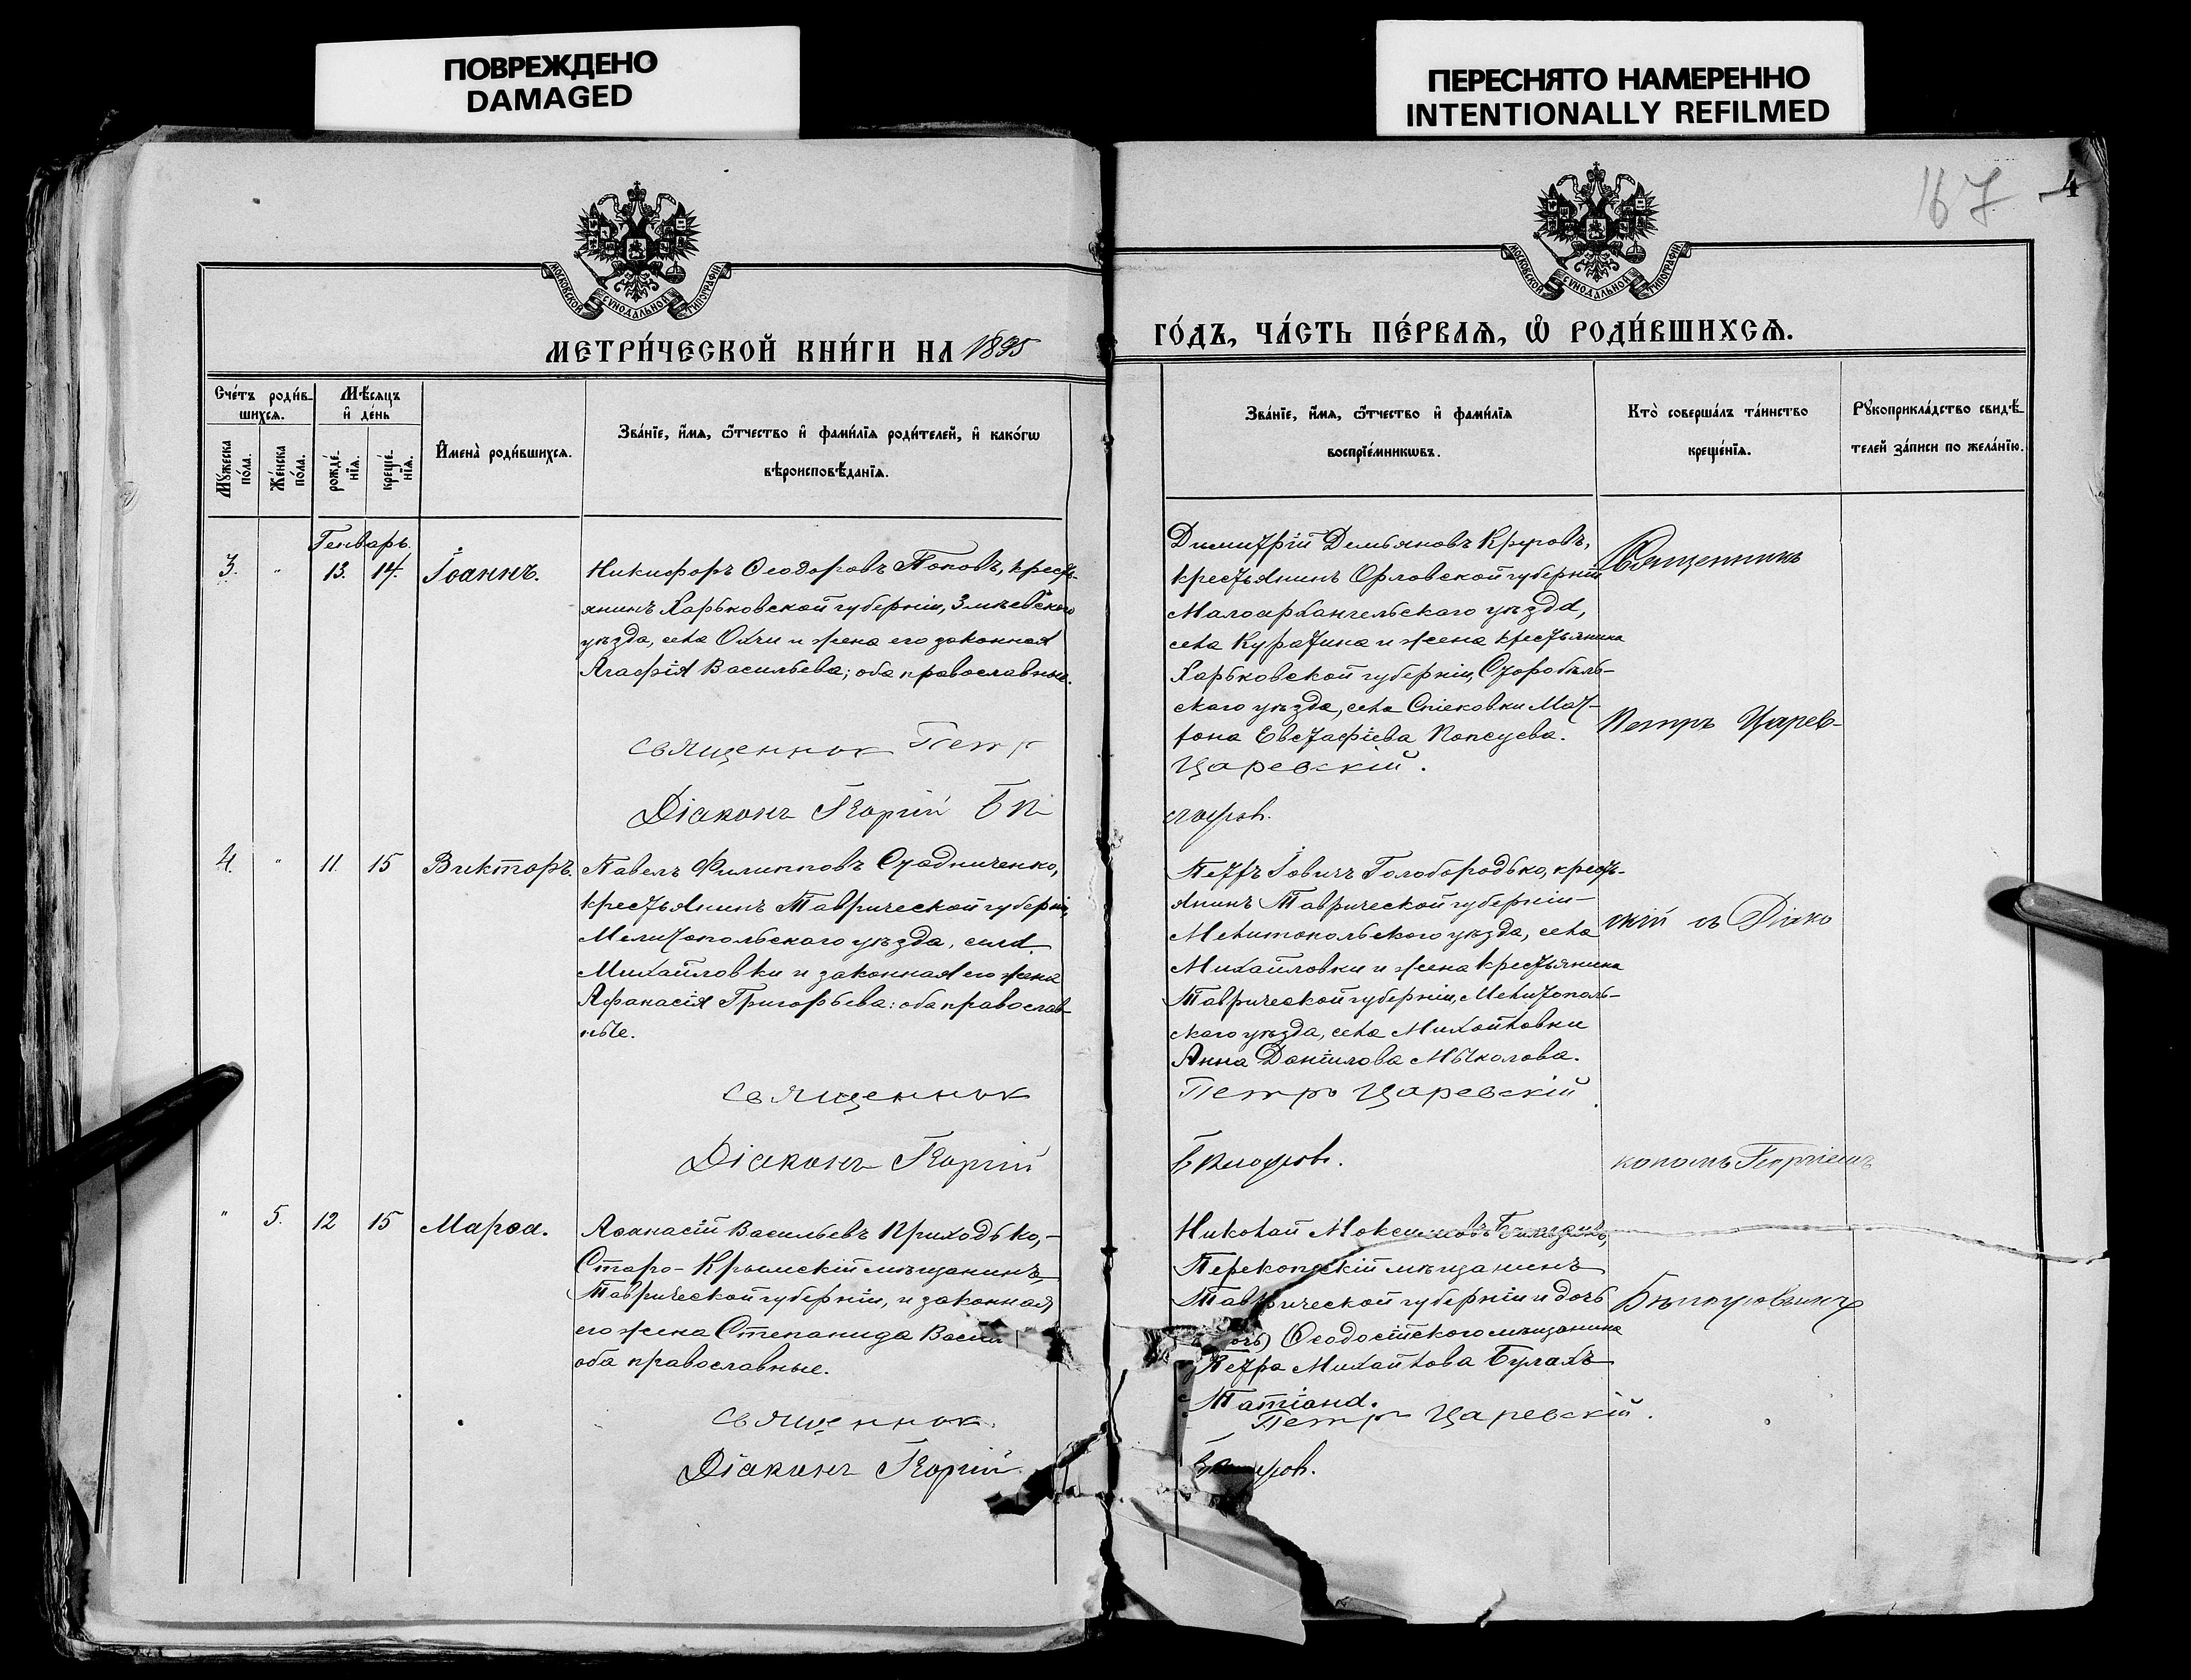 ПОВРЕЖДЕНО
DAMAGED
ПЕРЕСНЯТО НАМЕРЕННО
INTENTIONALLY REFILMED
167
4
МОСКОВСКОЙ СѴНОДАЛЬНОЙ ТИПОГРАФІИ
МОСКОВСКОЙ СѴНОДАЛЬНОЙ ТИПОГРАФІИ
МЕТРИ́ЧЕСКОЙ КНИ́ГИ НА 1895
ГО́ДЪ, ЧА́СТЬ ПЕ́РВАѦ, Ѡ҆ РОДИ́ВШИХСѦ.
Сче́тъ роди́в-
шихсѧ.
Мꙋ́жеска по́ла.
Же́нска по́ла.
Мѣ́сѧцъ
и҆ де́нь
рожде́-
нїѧ.
креще́-
нїѧ.
И҆мена̀ роди́вшихсѧ.
Зва́нїе, и҆́мѧ, ѻ҆́тчество и҆ фами́лїѧ роди́телей, и҆ како́гѡ
вѣроисповѣ́данїѧ.
Зва́нїе, и҆́мѧ, ѻ҆́тчество и҆ фами́лїѧ
воспрїе́мникѡвъ.
Кто̀ соверша́лъ та́инство
креще́нїѧ.
Рꙋкоприкла́дство свидѣ́-
телей за́писи по жела́нїю.
Генварь
3. " 13. 14. Іоаннъ.
Никифоръ Ѳеодоровъ Поповъ, кресть-
янинъ Харьковской губерніи, Зміевского
уѣзда, села Охчи и жена его законная
Агафія Васильева; оба православные.
Священник Петр
Діаконъ Георгій Бѣ
Димитрій Демьяновъ Круговъ,
крестьянинъ Орловской губерніи
Малоархангельскаго уѣзда,
села Куратина и жена крестьянина
Харьковской губерніи, Старобѣль-
скаго уѣзда, села Спѣсковки Мат-
рона Евстафіева Попсуева.
Царевскій.
логуров.
Священникъ
Петръ Царев-
4. " 11. 15 Викторъ.
Павелъ Филипповъ Стадниченко,
крестьянинъ Таврической губерніи,
Мелитопольскаго уѣзда, села
Михайловки и законная его жена
Афанасія Григорьева: оба православ-
ные.
Священник
Діаконъ Георгій
Петръ Іовичъ Голобородько, кресть-
янинъ Таврической губерніи
Мелитопольского уѣзда, села
Михайловки и жена крестьянина
Таврической губерніи, Мелитополь-
скаго уѣзда, села Михайловки
Анна Даніилова Мыколова.
Петръ Царевскій
Бѣлогуров.
скій съ Діако
кономъ Георгіемъ
" 5. 12 15 Марѳа.
Аѳанасій Васильевъ Приходько,
Старо-Крымскій мѣщанинъ
Таврической губерніи, и законная
его жена Степанида Васил
оба православные.
Священник.
Діаконъ Георгій
Николай Максимовъ
Перекопскій мѣщанинъ
Таврической губерніи и дочь
Ѳеодосійскаго мѣщанина
Петра Михайлова Булахъ
Татіана.
Петръ Царевскій.
Бѣлогуров.